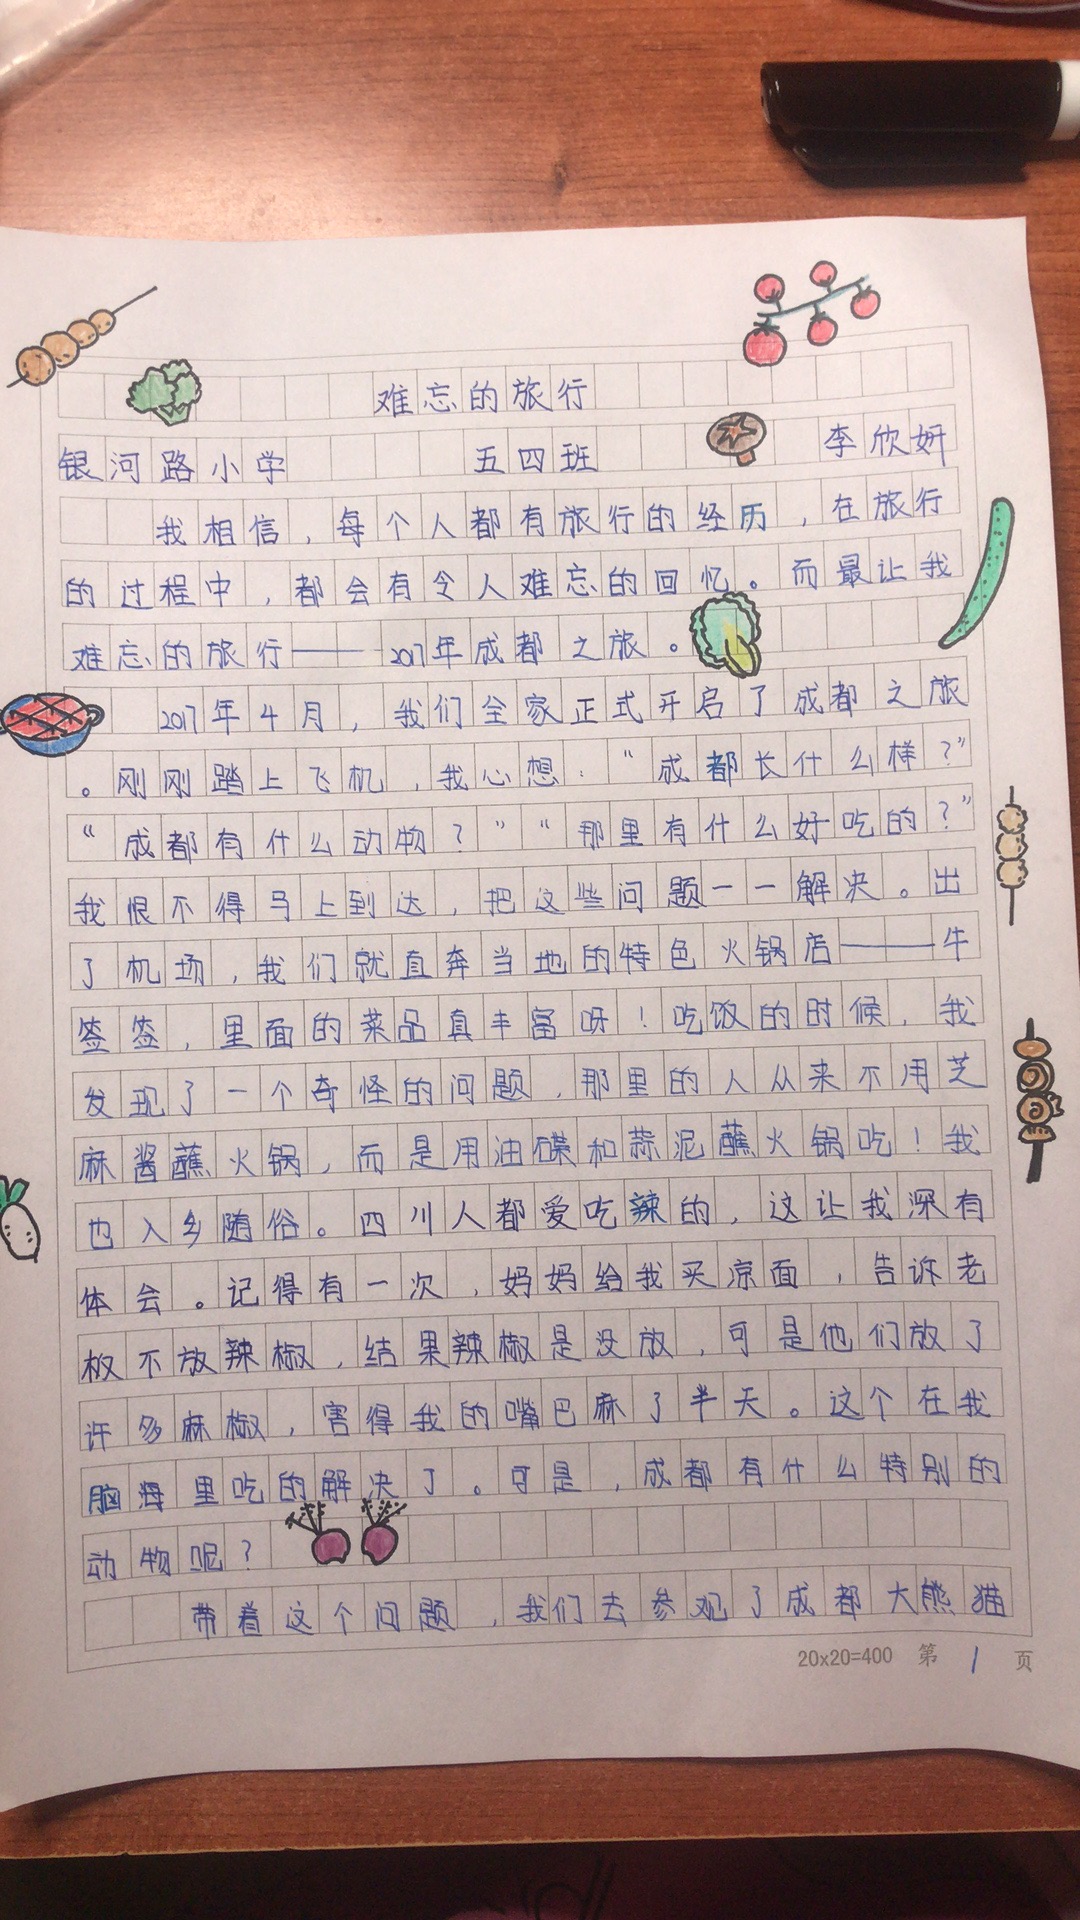 难忘的旅行
银河路小学 五四班 李欣妍
我相信，每个人都有旅行的经历，在旅行
的过程中，都会有令人难忘的回忆。而最让我
难忘的旅行——2017年成都之旅。
2017年4月，我们全家正式开启了成都之旅
。刚刚踏上飞机，我心想：“成都长什么样？”
“成都有什么动物？”“那里有什么好吃的？”
我恨不得马上到达，把这些问题一一解决。出
了机场，我们就直奔当地的特色火锅店——牛
签签，里面的菜品真丰富呀！吃饭的时候，我
发现了一个奇怪的问题，那里的人从来不用芝
麻酱蘸火锅，而是用油碟和蒜泥蘸火锅吃！我
也入乡随俗。四川人都爱吃辣的，这让我深有
体会。记得有一次，妈妈给我买凉面，告诉老
板不放辣椒，结果辣椒是没放，可是他们放了
许多麻椒，害得我的嘴巴麻了半天。这个在我
脑海里吃的解决了。可是，成都有什么特别的
动物呢？
带着这个问题，我们去参观了成都大熊猫
20x20=400 第 1 页